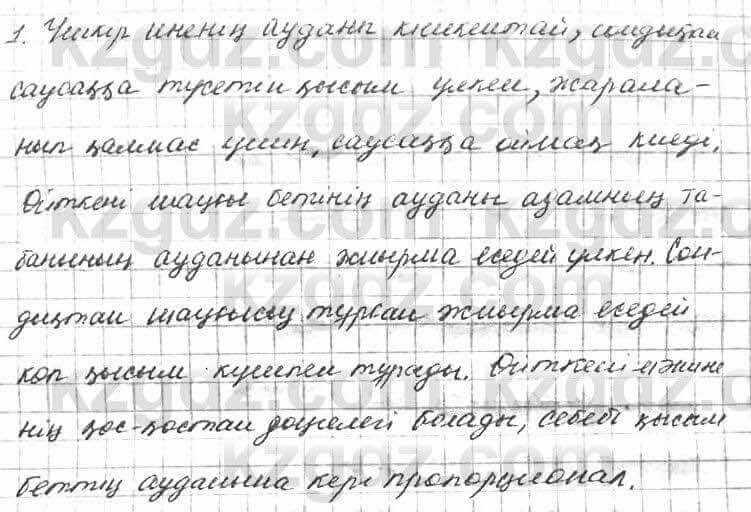 1. Үшкір иненің ауданы кішкентай, сондықтан
саусаққа түсетін қысым үлкен, жарала-
нып қалмас үшін, саусаққа оймақ киеді.
Өйткені шаңғы бетінің ауданы адамның та-
банының ауданынан жиырма еседей үлкен. Сон-
дықтан шаңғысыз тұрған жиырма еседей
көп қысым күшпен тұрады. Өйткені машине
нің қос-қостан доңғелегі болады, себебі қысым
беттің ауданына кері пропорционал.
kzgdz.com